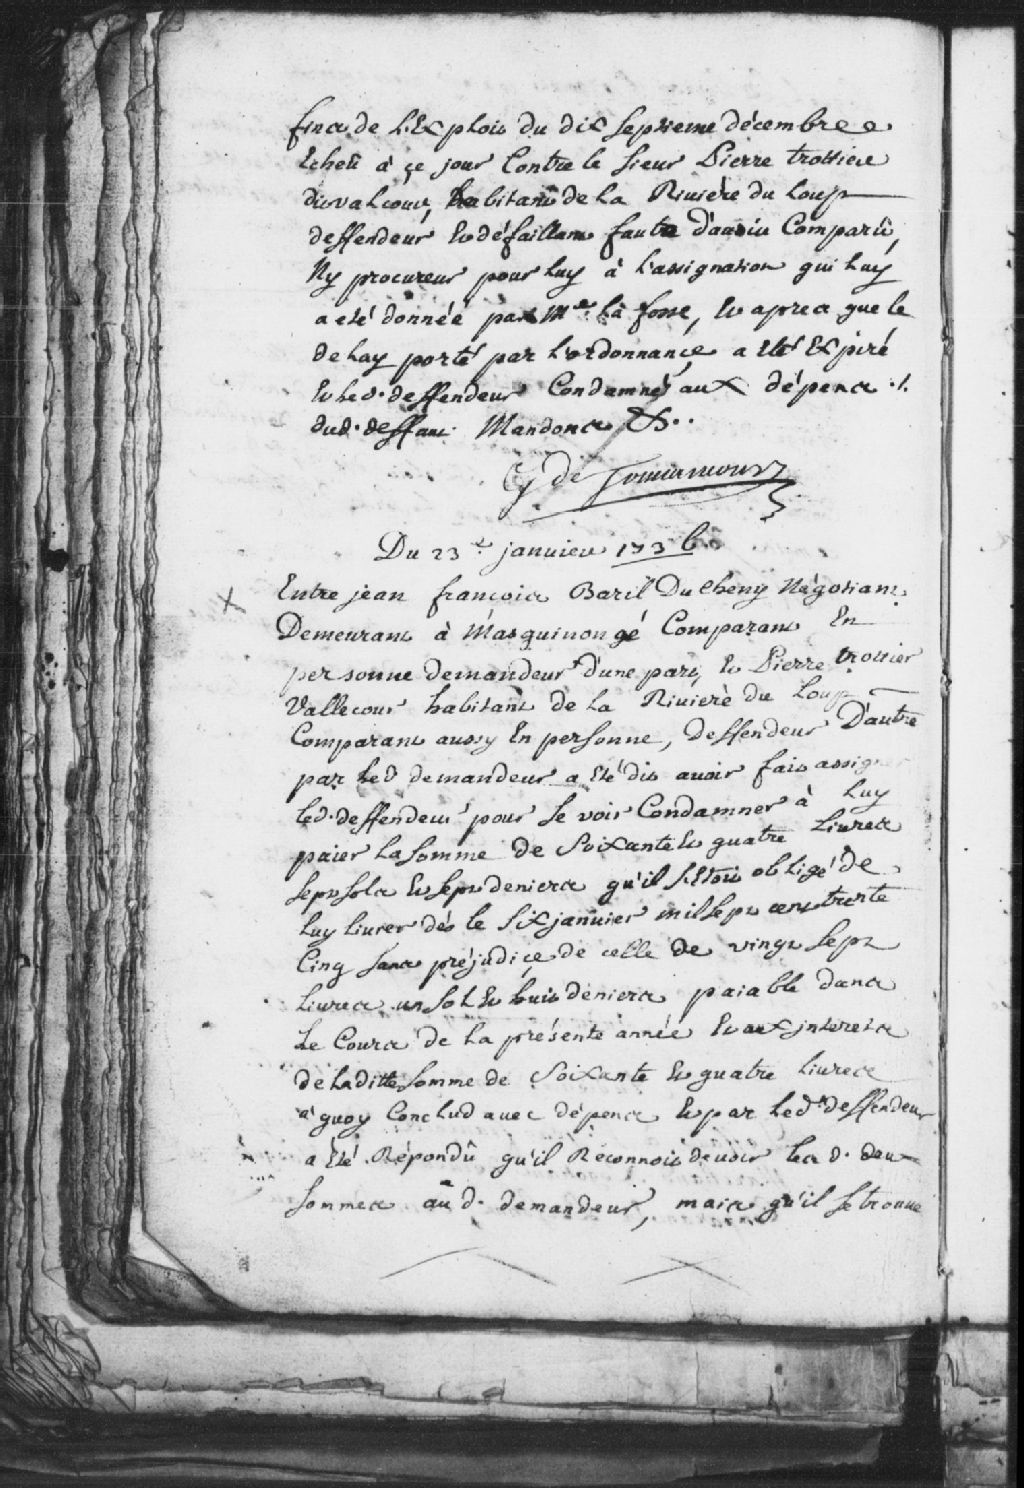 fins de l'Exploit du dix septieme décembre
Echeû à çe jour Contre le sieur Pierre trottier
duvalcour, habitant de la Riviére du Loup
deffendeur et défaillant faute d'avoir Comparû,
Ny procureur pour luy à l'assignation qui luy
a eté donnéé par Me la fosse, et apres que le
delay porté par l'ordonnançe a eté Expiré
et led. deffendeur Condamné aux dépens ./.
dud. deffaut. Mandons &..
G de Tonnancour
Du 23e janvier 1736
X Entre jean françois Baril Ducheny Négotiant
Demeurant à Masquinongé Comparant En
personne demandeur d'une part, et Pierre trottier
Vallecour habitant de la Riviere du Loup
Comparant aussy En personne, deffendeur D'autre
part led demandeur a eté dit avoir fait assig
led. deffendeur pour se voir Condamner à luy
paier la somme de soixante et quatre Livres
sept sols et sept deniers qu'il s'Etoit obligé de
luy livrer dés le six janvier mil sept cent trente
Cinq sans préjudiçe de celle de vingt sept
Livres un sol et huit deniers paiable dans
Le Cours de la présente année et aux interets
de laditte somme de soixante et quatre Livres
à quoy Conclud avec dépens et par led. deffendeur
a eté Répondû qu'il Réconnoit devoir les d. deux
sommes au d. demandeur, mais qu'il se trouve